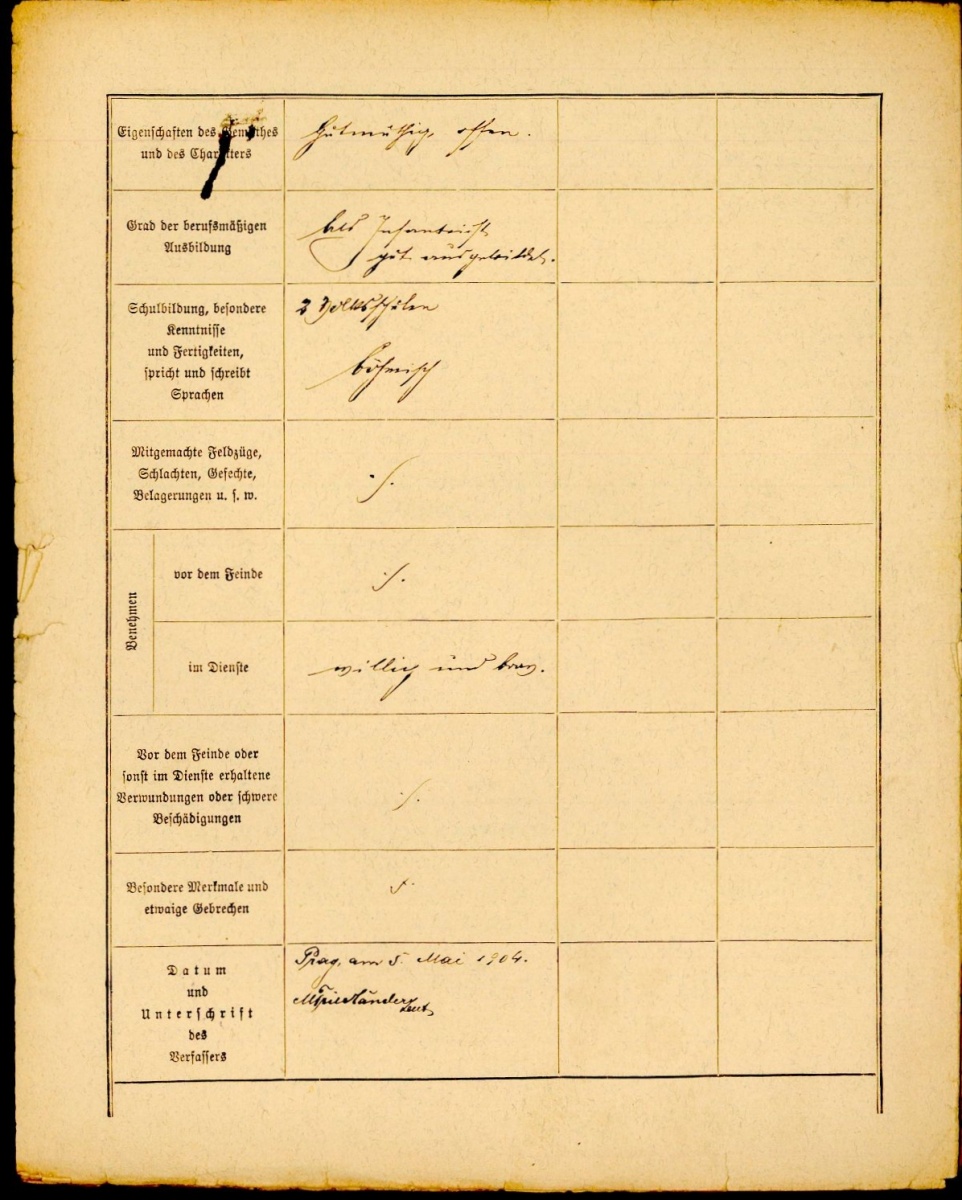 Eigenschaften des Gemüthes
und des Charakters
gutmüthig, offen.
Grad der berufsmäßigen
Ausbildung
Als Infanterist
gut ausgebildet.
Schulbildung, besondere
Kenntnisse
und Fertigkeiten,
spricht und schreibt
Sprachen
2 Volksschulen
böhmisch
Mitgemachte Feldzüge,
Schlachten, Gefechte,
Belagerungen u. s. w.
./.
Benehmen
vor dem Feinde
./.
im Dienste
willig und brav.
Vor dem Feinde oder
sonst im Dienste erhaltene
Verwundungen oder schwere
Beschädigungen
./.
Besondere Merkmale und
etwaige Gebrechen
./.
Datum
und
Unterschrift
des
Verfassers
Prag, am 5. Mai 1904.